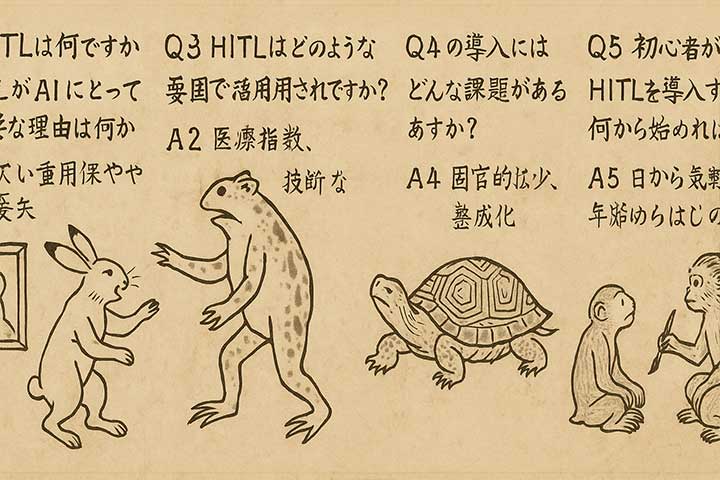 TLは何ですか
LがAIにとって
な理由は何か
い重用保やや
矢
Q3 HITLはどのような
で活用用されですか?
A2 医療指数、
技断な
Q4の導入には
どんな課題がある
あすか?
A4 固官的少、
整成化
Q5 初心者が
HITLを導入す
何から始めれ
A5 日から気
年ゆらはじの